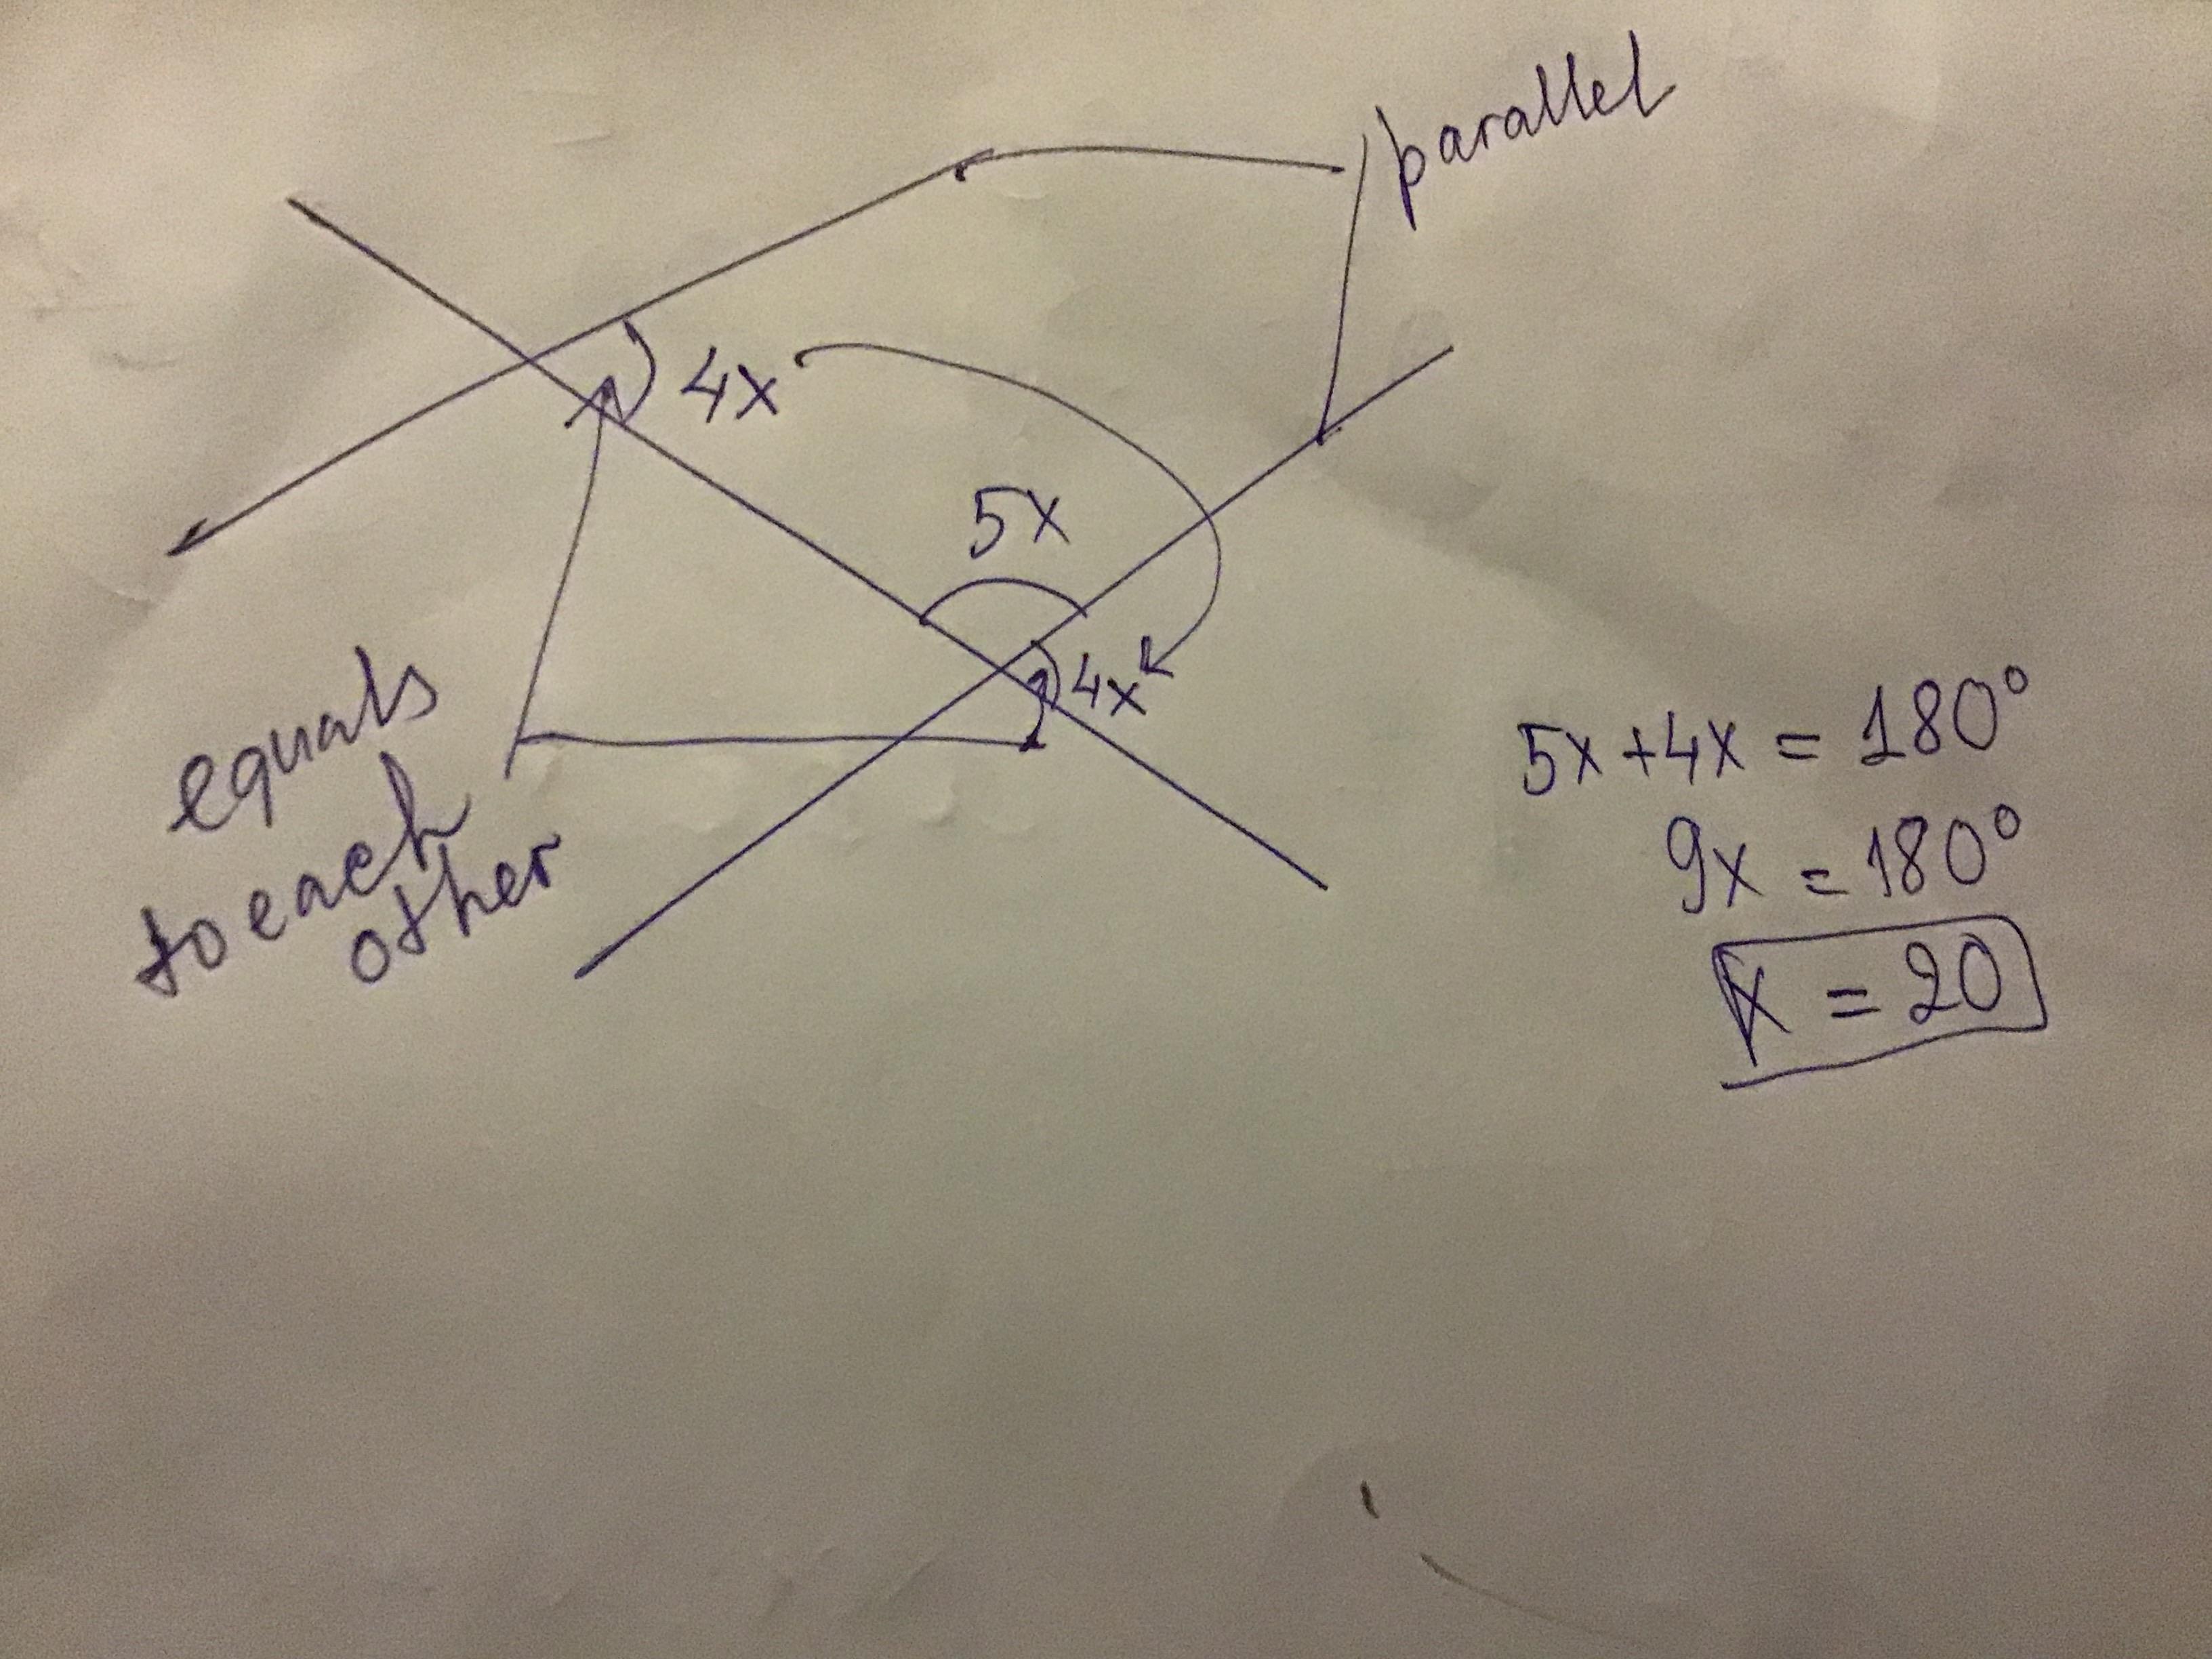 parallel
4x
5x
4x
equals
to each
other
5x + 4x = 180°
9x = 180°
x = 20